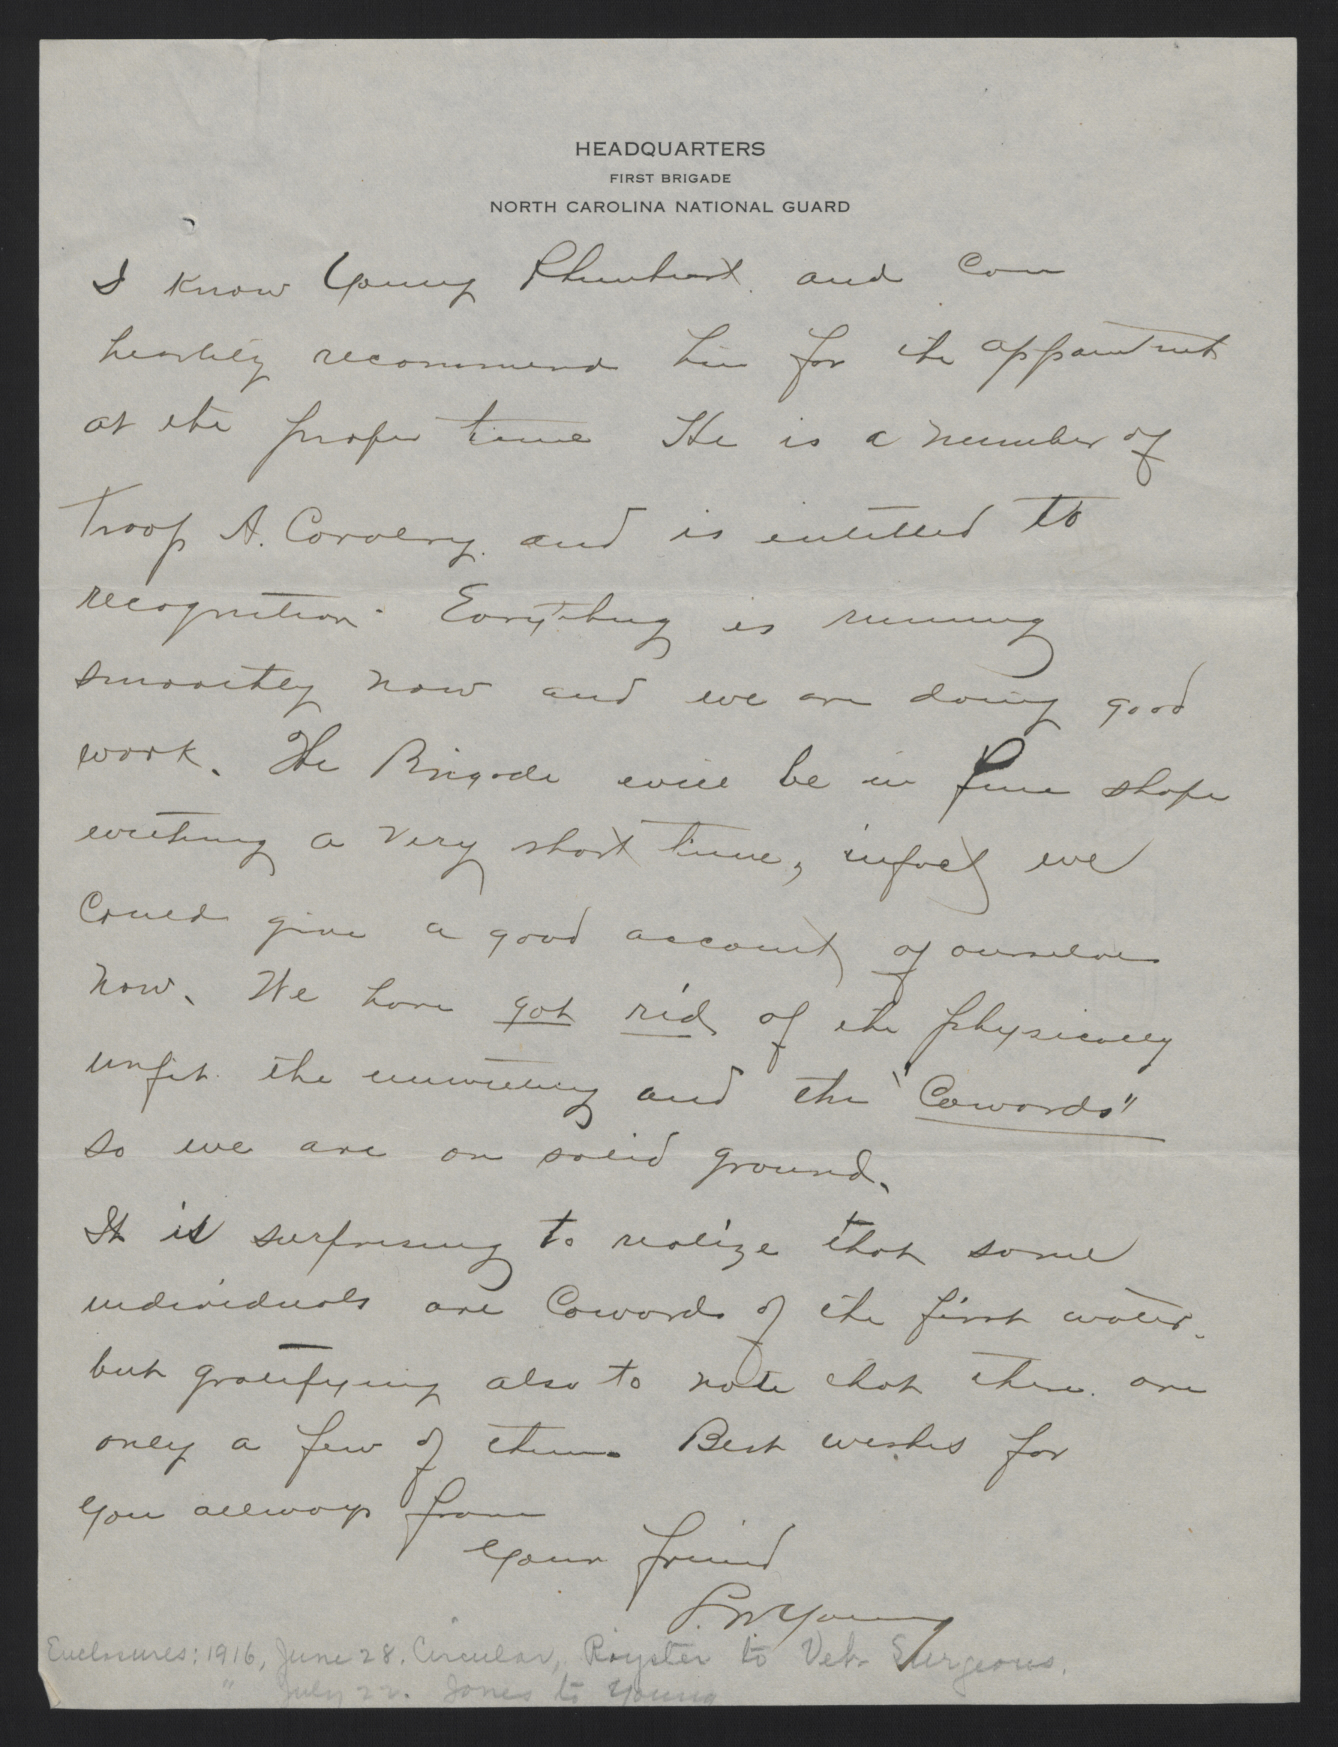 HEADQUARTERS
FIRST BRIGADE
NORTH CAROLINA NATIONAL GUARD
I know Young Rhinehart and can
heartily recommend him for the appointment
at the proper time He is a member of
Troop A. Cavalry. and is entitled to
recognition. Everything is running
smoothly now and we are doing good
work. The Brigade will be in fine shape
withing a very short time, infact we
could give a good account of ourselves
now. We have got rid of the physically
unfit. the unwilling and the "Cowards"
so we are on solid ground.
It is surprising to realize that some
individuals are Cowards of the first water.
but gratifying also to note that there are
only a few of them. Best wishes for
you allways from
Your friend
L. W. Young
Enclosures: 1916, June 28. Circular, Royster to Vet. Surgeons.
" July 22. Jones to Young